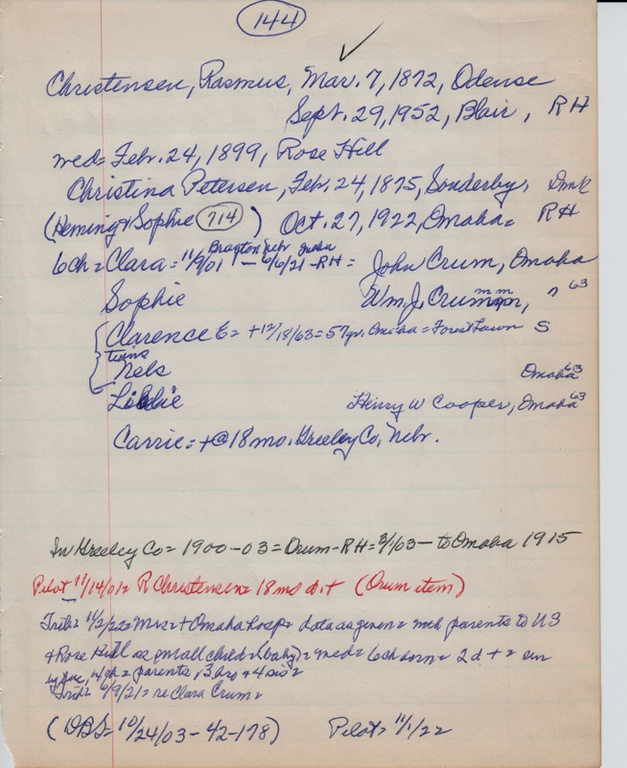 144
Christensen, Rasmus, Mar. 7, 1872, Odense
Sept. 29, 1952, Blair, RH
wed= Feb. 24, 1899, Rose Hill
Christina Petersen, Feb. 24, 1875, Sonderby, Dmk
(Heming & Sophie 714) Oct. 27, 1922, Omaha= RH
6ch= Clara= 11/9/01 Brayton Nebr - 6/6/21 Omaha -RH= John Crum, Omaha
Sophie Wm. J. Crum, " 63
Clarence E= +12/18/63=57yr. Omaha= Forest Lawn S
twins
Nels Omaha 63
Lillie Henry W Cooper, Omaha 63
Carrie= +@18mo. Greeley Co, Nebr.
In Greeley Co= 1900-03= Orum-RH= 3/1/03- to Omaha 1915
Pilot 11/14/01= R Christensen= 18 mo d. + (Orum item)
Trib= 11/2/22= Mrs= + Omaha hosp= data as given= with parents to US
+ Rose Hill as small child= (baby)= med= 6ch born= 2 d + = sur
by hus, 4/ch= parents, 3 bro + 4 sis=
Trib= 6/9/21= re Clara Crum=
(DBS= 10/24/03-42-178) Pilot= 11/1/22